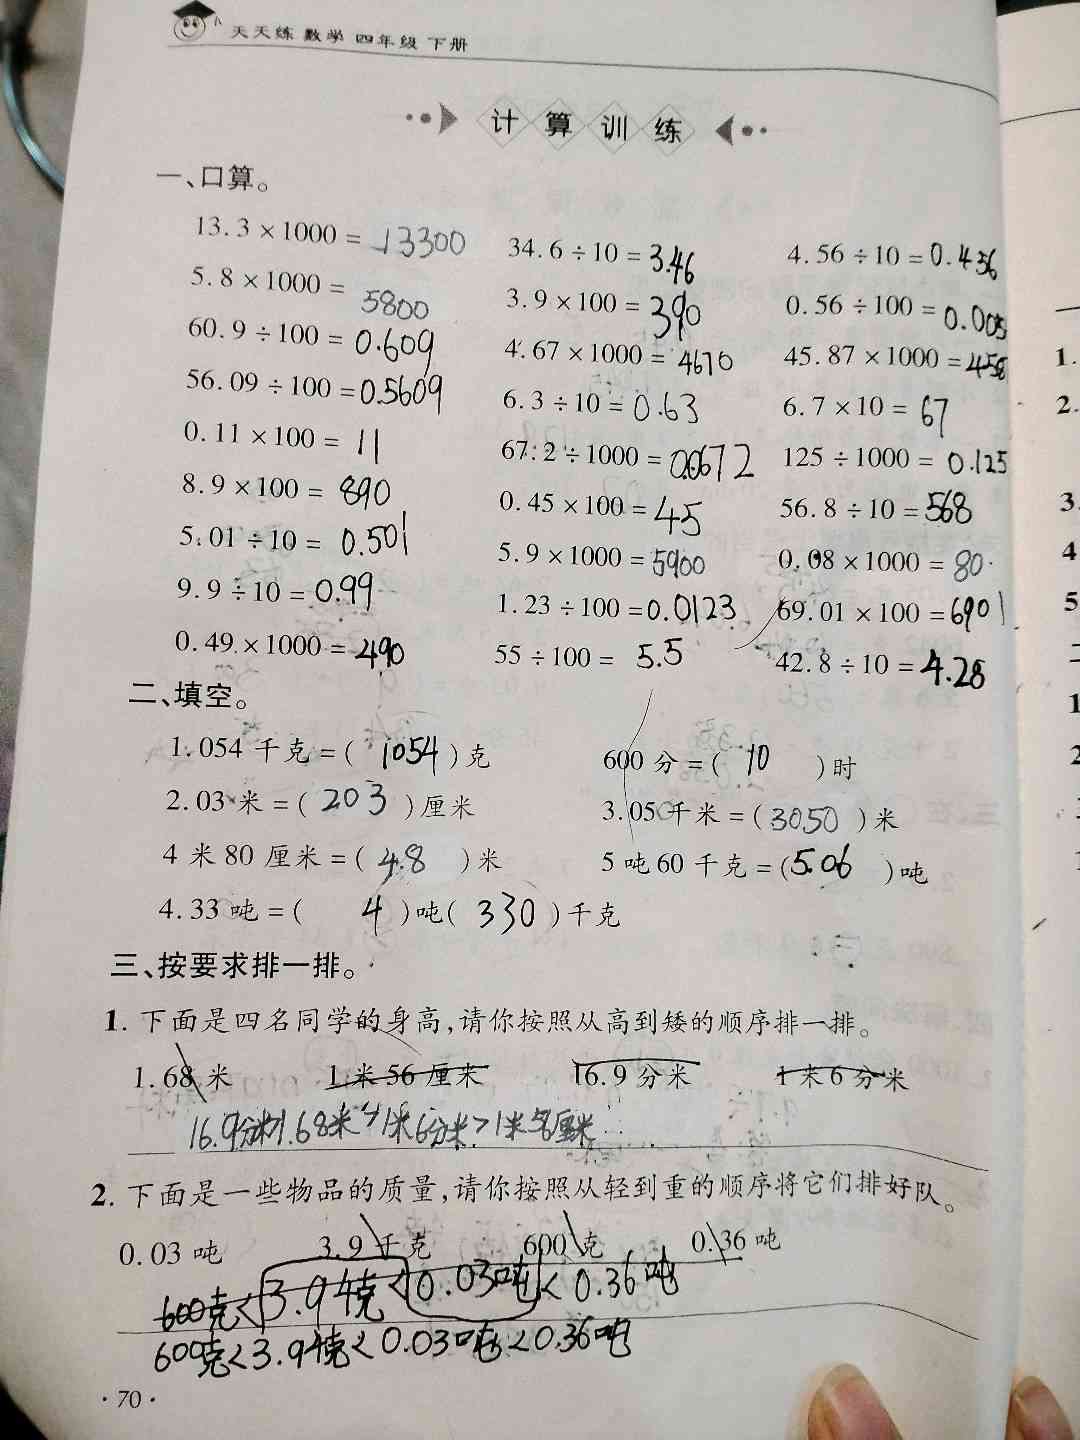 天天练 数学 四年级 下册
计算训练
一、口算。
13.3×1000=13300 34.6÷10=3.46 4.56÷10=0.456
5.8×1000=5800 3.9×100=390 0.56÷100=0.005
60.9÷100=0.609 4.67×1000=4670 45.87×1000=458
56.09÷100=0.5609 6.3÷10=0.63 6.7×10=67
0.11×100=11 67.2÷1000=0.0672 125÷1000=0.125
8.9×100=890 0.45×100=45 56.8÷10=568
5.01÷10=0.501 5.9×1000=5900 0.08×1000=80
9.9÷10=0.99 1.23÷100=0.0123 69.01×100=6901
0.49×1000=490 55÷100=5.5 42.8÷10=4.28
二、填空。
1.054千克=(1054)克 600分=(10)时
2.03米=(203)厘米 3.05千米=(3050)米
4米80厘米=(4.8)米 5吨60千克=(5.06)吨
4.33吨=(4)吨(330)千克
三、按要求排一排。
1. 下面是四名同学的身高,请你按照从高到矮的顺序排一排。
1.68米 1米56厘米 16.9分米 1米6分米
16.9分米>1.68米>1米6分米>1米56厘米
2. 下面是一些物品的质量,请你按照从轻到重的顺序将它们排好队。
0.03吨 3.9千克 600克 0.36吨
600克<3.94克<0.03吨<0.36吨
600克<3.94克<0.03吨<0.36吨
·70·
1.
2.
3.
4
5
1
2